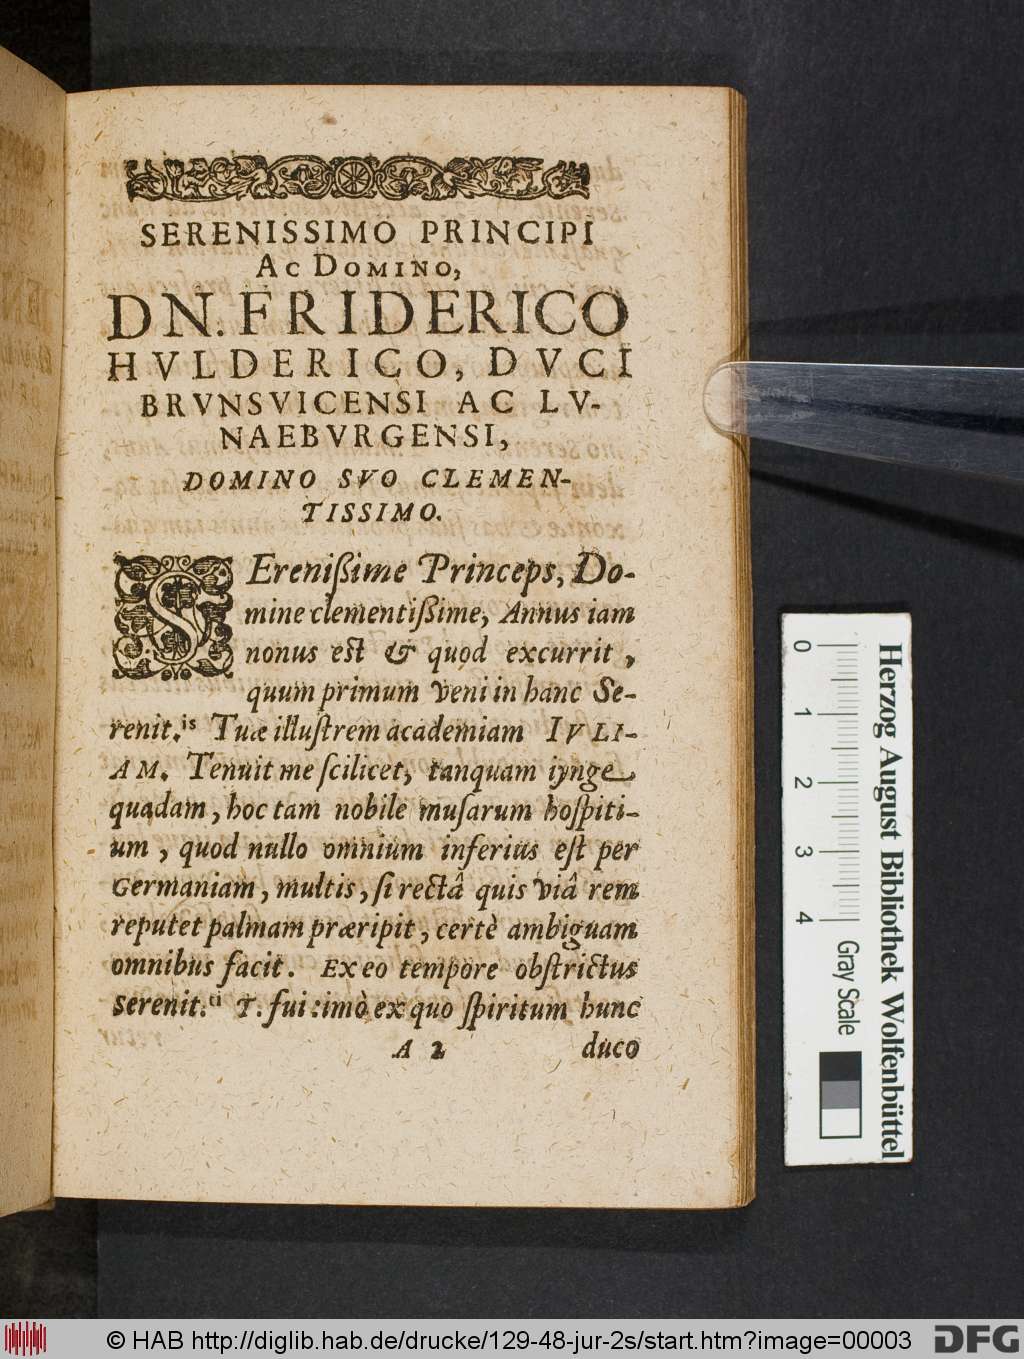 SERENISSIMO PRINCIPI
AC DOMINO,
DN. FRIDERICO
HVLDERICO, DVCI
BRVNSVICENSI AC LV-
NAEBVRGENSI,
DOMINO SVO CLEMEN-
TISSIMO.
SEreniſſime Princeps, Do-
mine clementiſſime, Annus iam
nonus est & quod excurrit,
quum primum veni in hanc Se-
renit.is Tuæ illuſtrem academiam IVLI-
AM. Tenuit me ſcilicet, tanquam iynge
quadam, hoc tam nobile muſarum hoſpiti-
um, quod nullo omnium inferius eſt per
Germaniam, multis, ſi rectâ quis viâ rem
reputet palmam præripit, certè ambiguam
omnibus facit. Ex eo tempore obſtrictus
Serenit.ti T. fui: imò ex quo ſpiritum hunc
A 2 duco
0 1 2 3 4
Gray Scale
Herzog August Bibliothek Wolfenbüttel
© HAB http://diglib.hab.de/drucke/129-48-jur-2s/start.htm?image=00003
DFG